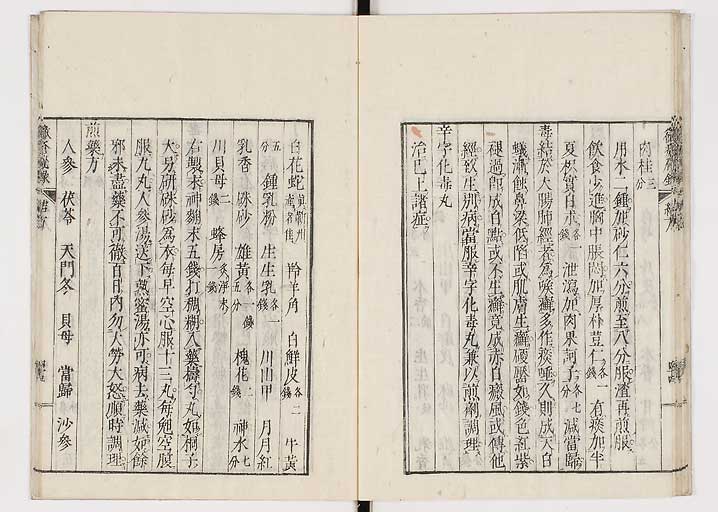 肉桂三分
用水二鍾加砂仁六分煎至八分服渣再煎服
飲食少進胸中脹悶加厚朴薏仁各一錢 有痰加半
夏枳實白朮各一錢 泄瀉加肉果訶子各七分 減當歸
毒結於大腸肺經者為喉癬多作痰唾久則成天白
蟻漸蝕鼻梁低陷或肌膚生癬硬靨如錢色紅紫
褪過即成白點或木生癬竟成赤白癜風或傳他
經欲生別病當服辛字化毒丸兼以煎劑調理
辛字化毒丸
治巳上諸症
白花蛇真蘄州產者佳 羚羊角 白鮮皮各二錢 牛黃
五分 鍾乳粉 生生乳各一錢 川山甲 月月紅
乳香 硃砂 雄黃各一錢五分 槐花二錢 神水七分
川貝母二錢 蜂房炙淨末一錢
右製末神麯末五錢打稠糊入藥擣勻丸如桐子
大另研硃砂為衣每早空心服十三丸每晚空腹
服九丸人參湯送下蒸蜜湯亦可病去藥減如餘
邪未盡藥不可徹百日內勿大勞大怒順時調理
煎藥方
人參 茯苓 天門冬 貝母 當歸 沙參